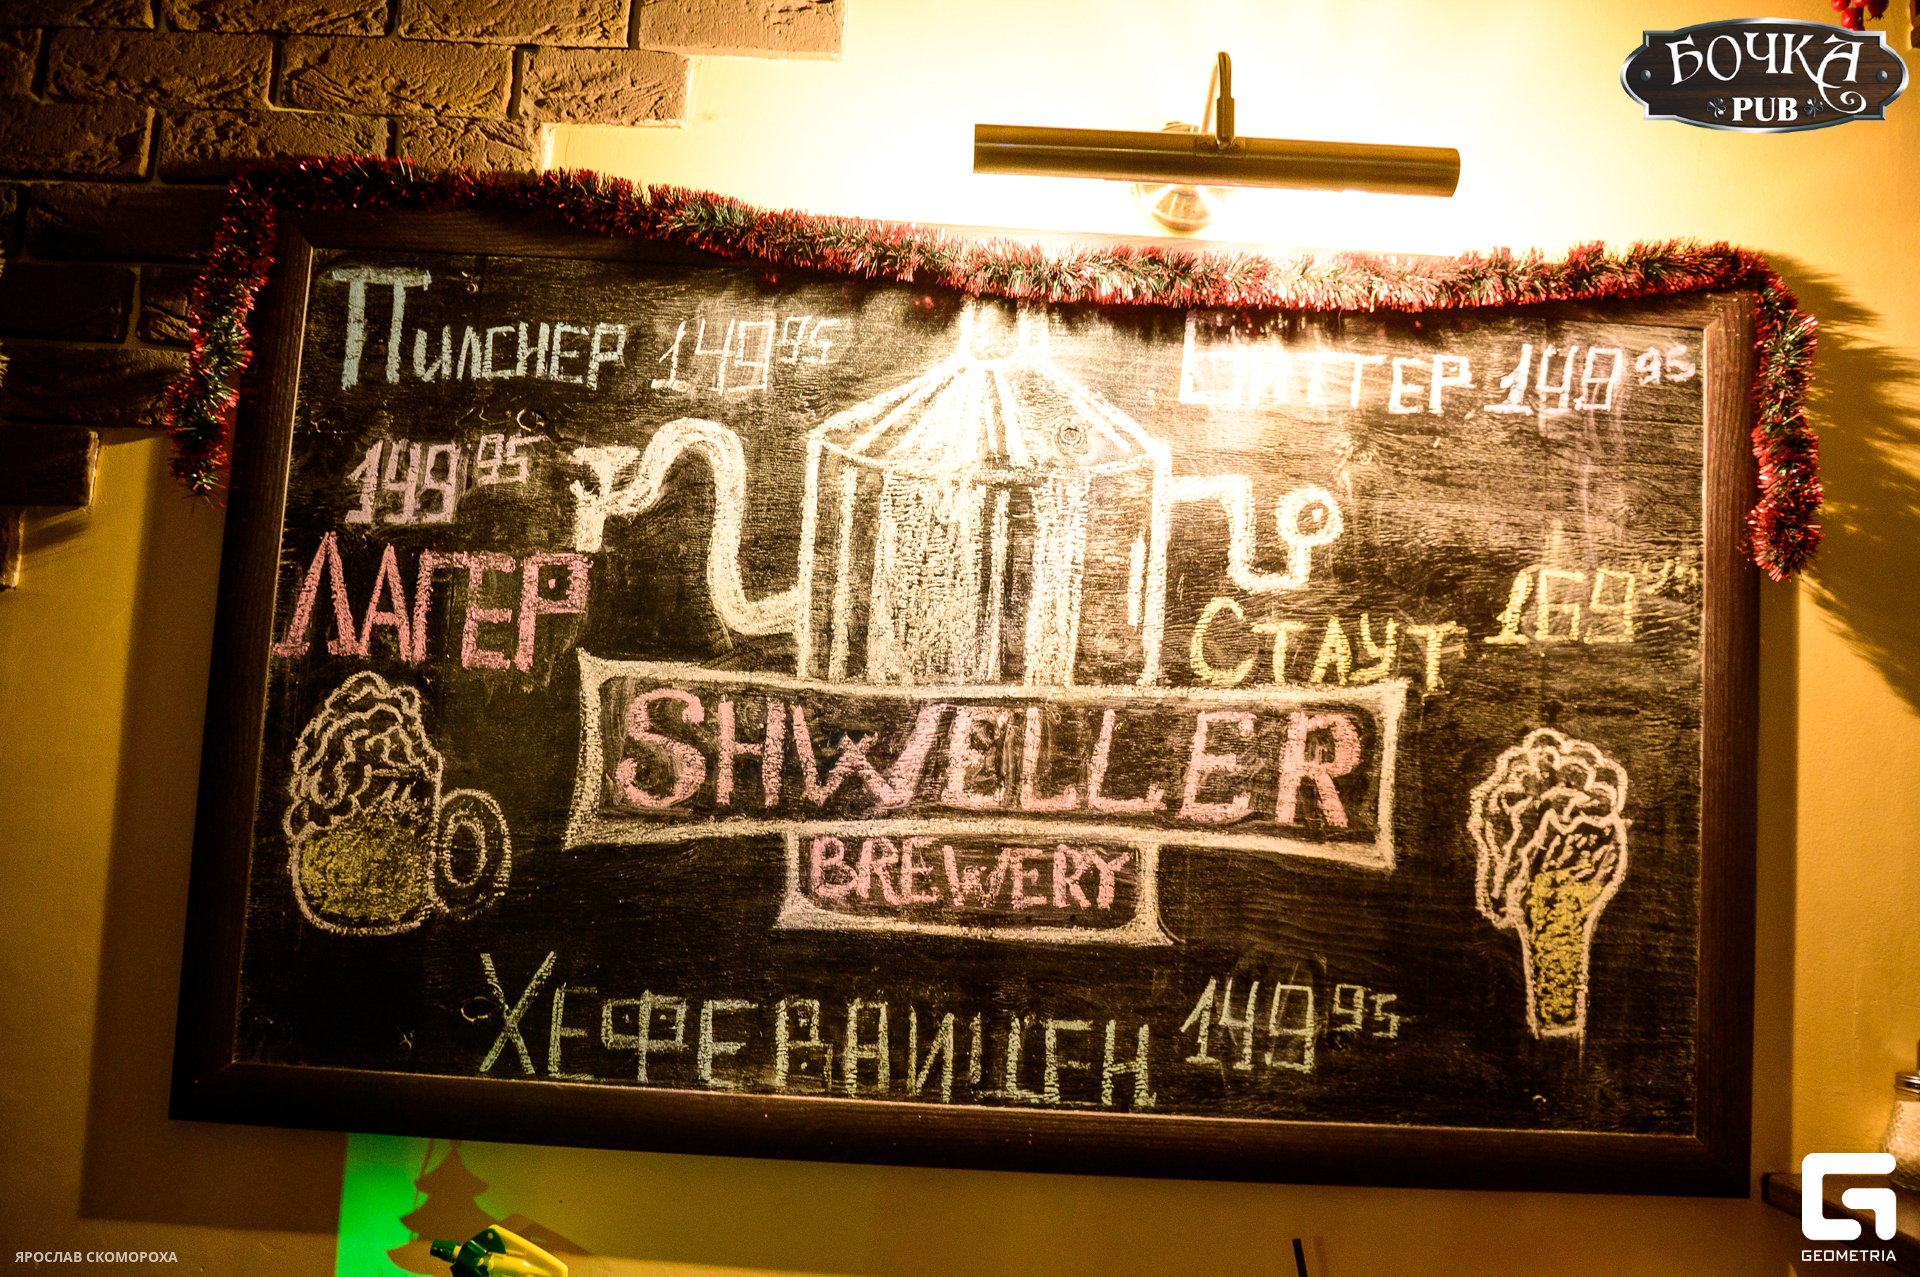 БОЧКА
PUB
Пилснер 149 95
Биттер 149 95
149 95
ЛАГЕР
Стаут 169 95
SHWELLER
BREWERY
ХЕФЕВАЙЦЕН 149 95
ЯРОСЛАВ СКОМОРОХА
GEOMETRIA